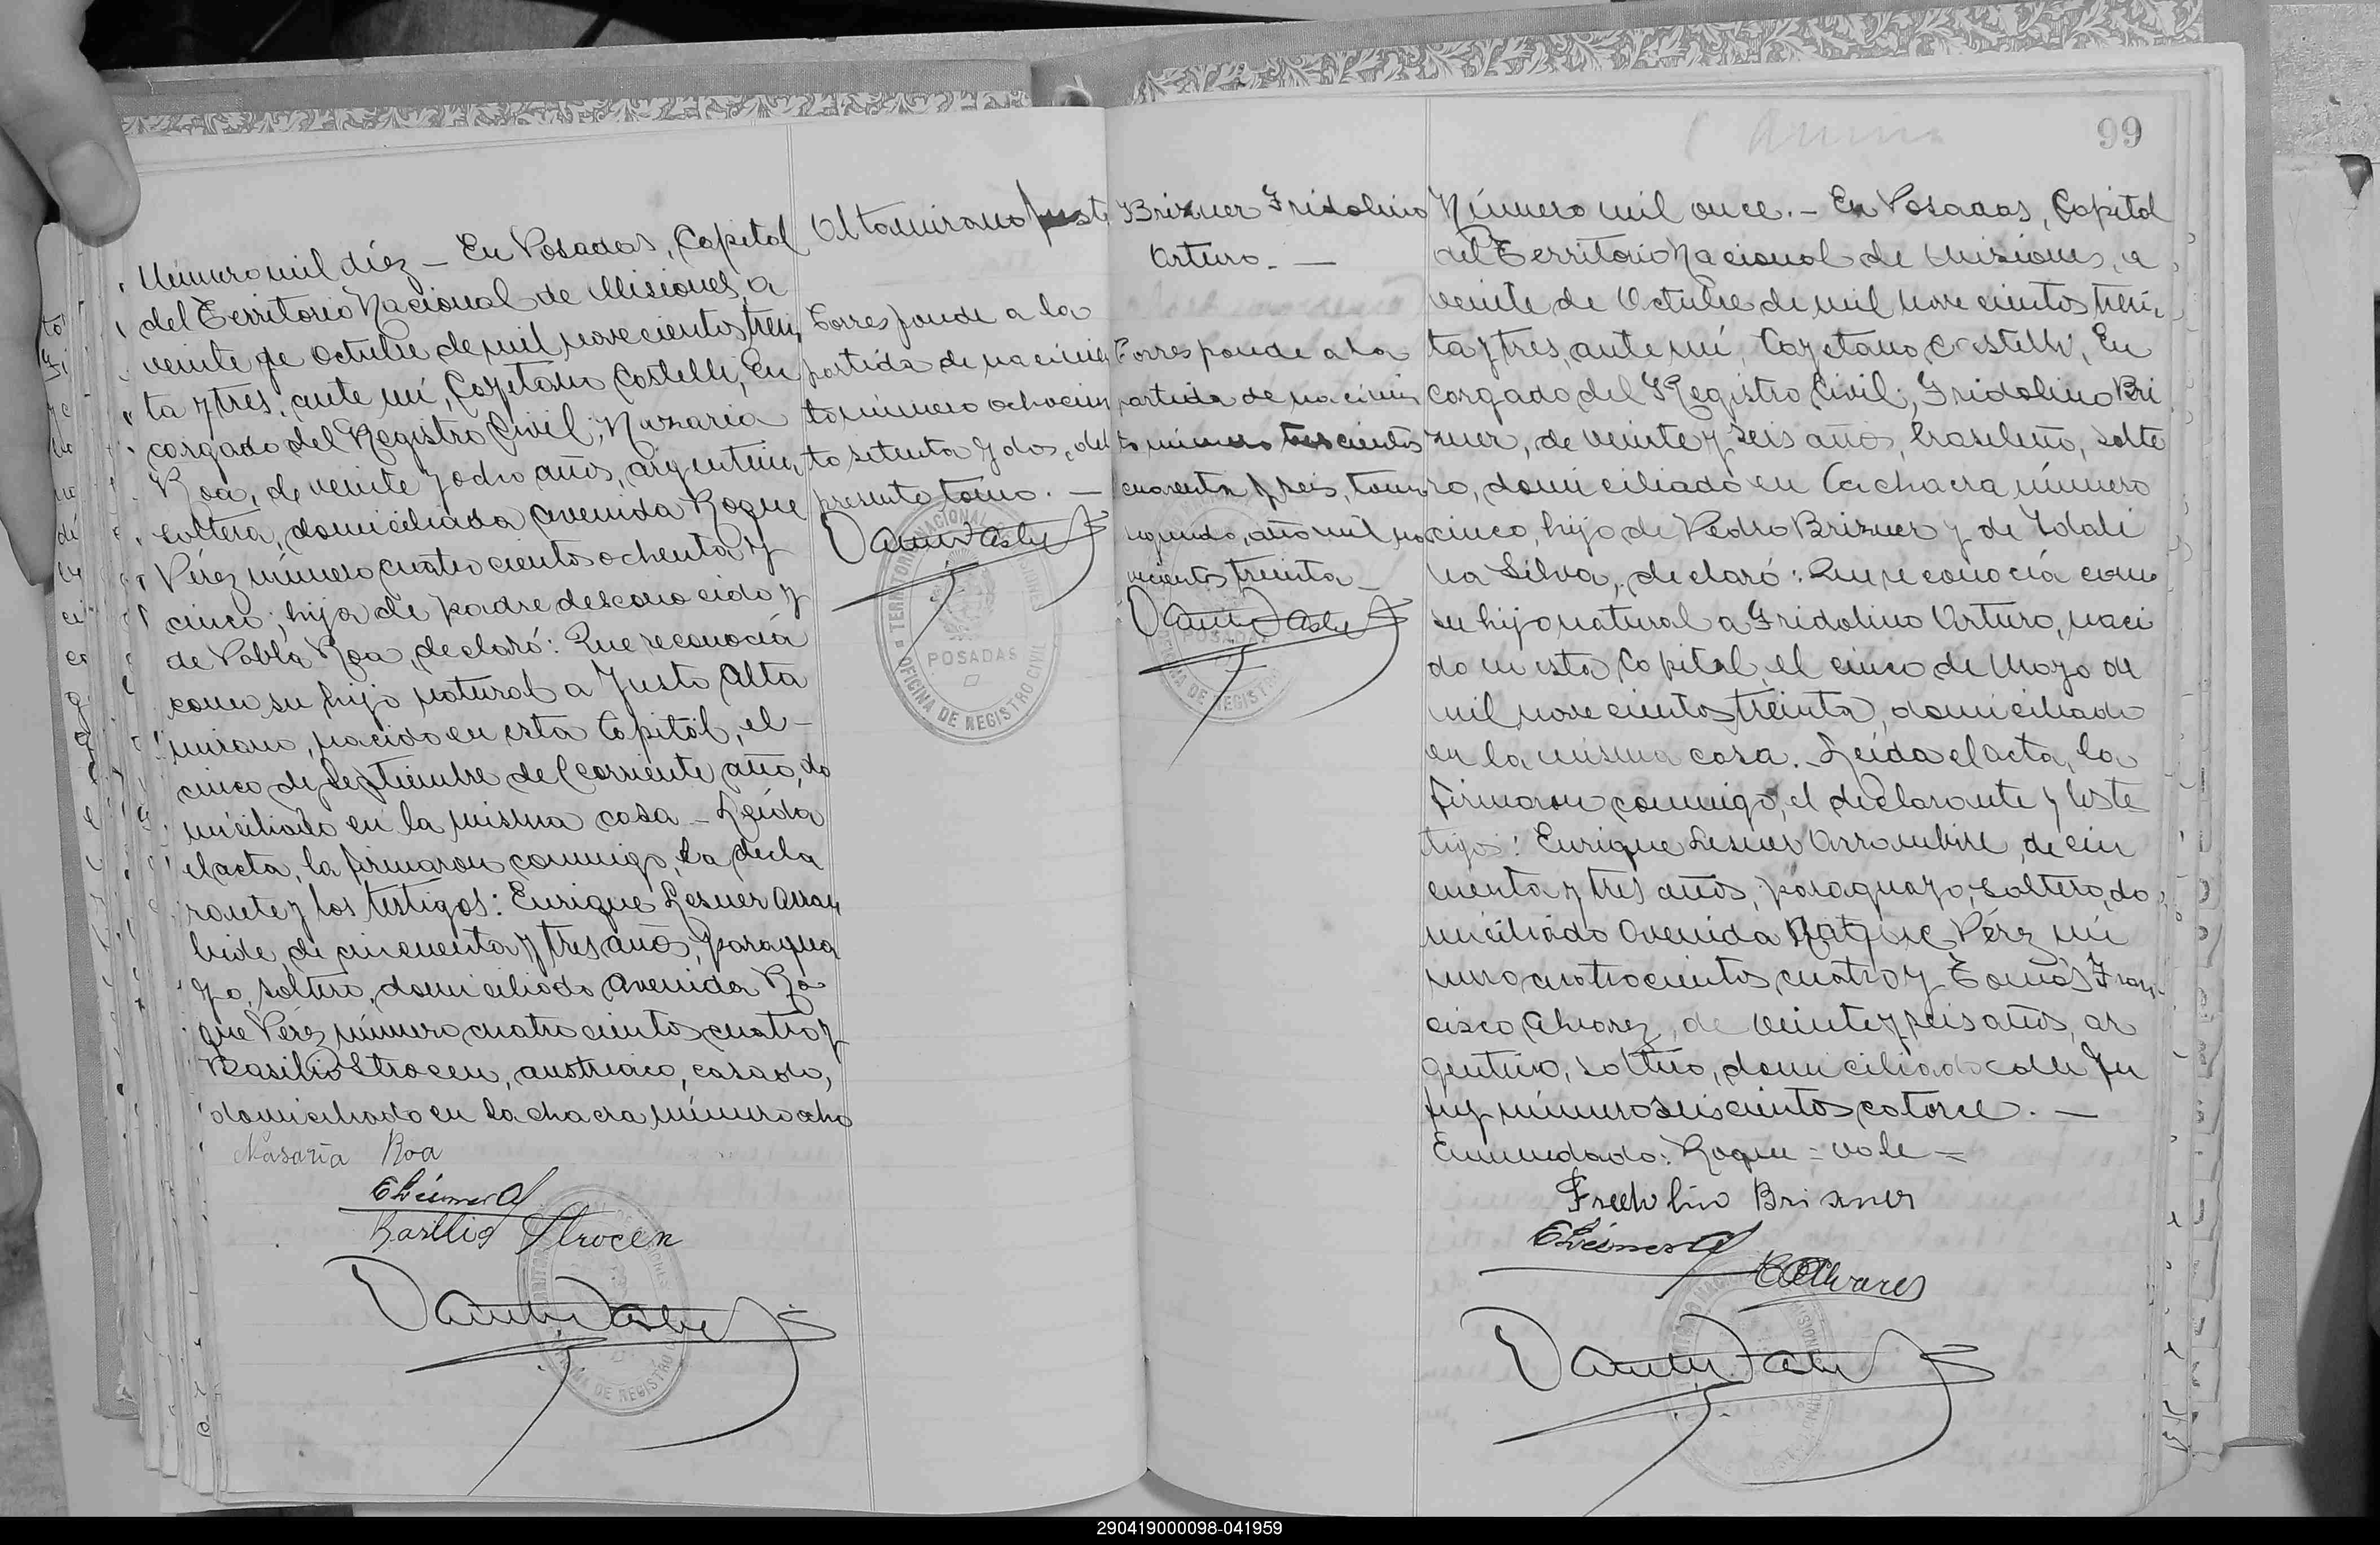 Número mil diéz — En Posadas, Capital
del Territorio Nacional de Misiones, a
veinte de Octubre de mil novecientos trein
ta y tres, ante mí, Cayetano Castelli, En
cargado del Registro Civil; Nazaria
Roa, de veinte y ocho años, argentina,
soltera, domiciliada avenida Roque
Pérez número cuatrocientos ochenta y
cinco; hija de padre desconocido y
de Pabla Roa, declaró: Que reconocía
como su hijo natural a Justo Alta
mirano, nacido en esta Capital, el —
cinco de Septiembre del corriente año, do
miciliado en la misma casa — Leída
el acta, la firmaron conmigo, la decla
rante y los testigos: Enrique Lesner Arram
bide, de cincuenta y tres años, paragua
yo, soltero, domiciliado Avenida Ro
que Pérez número cuatrocientos cuatro y
Basilio Strocen, austriaco, casado,
domiciliado en la chacra número ocho
Nasaria Roa
Basilio Strocen
Altamirano Justo
Corresponde a la
partida de nacimien
to número ochocien
to setenta y dos, del
presente tomo. —
TERRITORIO NACIONAL DE MISIONES
POSADAS
OFICINA DE REGISTRO CIVIL
99
Brixner Fridolino
Arturo. —
Corresponde a la
partida de nacimien
to número trescientos
cuarenta y seis, tomo
segundo, año mil no
vecientos treinta —
Número mil once. — En Posadas, Capital
del Territorio Nacional de Misiones, a
veinte de Octubre de mil novecientos trein
ta y tres, ante mí, Cayetano Castelli, En
cargado del Registro Civil; Fridolino Bri
xner, de veinte y seis años, brasileño, solte
ro, domiciliado en la chacra número
cinco, hijo de Pedro Brixner y de Idali
na Silva, declaró: Que reconocía como
su hijo natural a Fridolino Arturo, naci
do en esta Capital, el cinco de Mayo de
mil novecientos treinta, domiciliado
en la misma casa. — Leída el acta, la
firmaron conmigo, el declarante y teste
tigos: Enrique Lesner Arrambide, de cin
cuenta y tres años, paraguayo, soltero, do
miciliado Avenida Roque Pérez nú
mero cuatrocientos cuatro y Tomás Fran
cisco Alvarez, de veinte y seis años, ar
gentino, soltero, domiciliado calle Ju
juy número seiscientos catorce. —
Enmendado: Roque = vale =
Fredolino Brixner
290419000098-041959